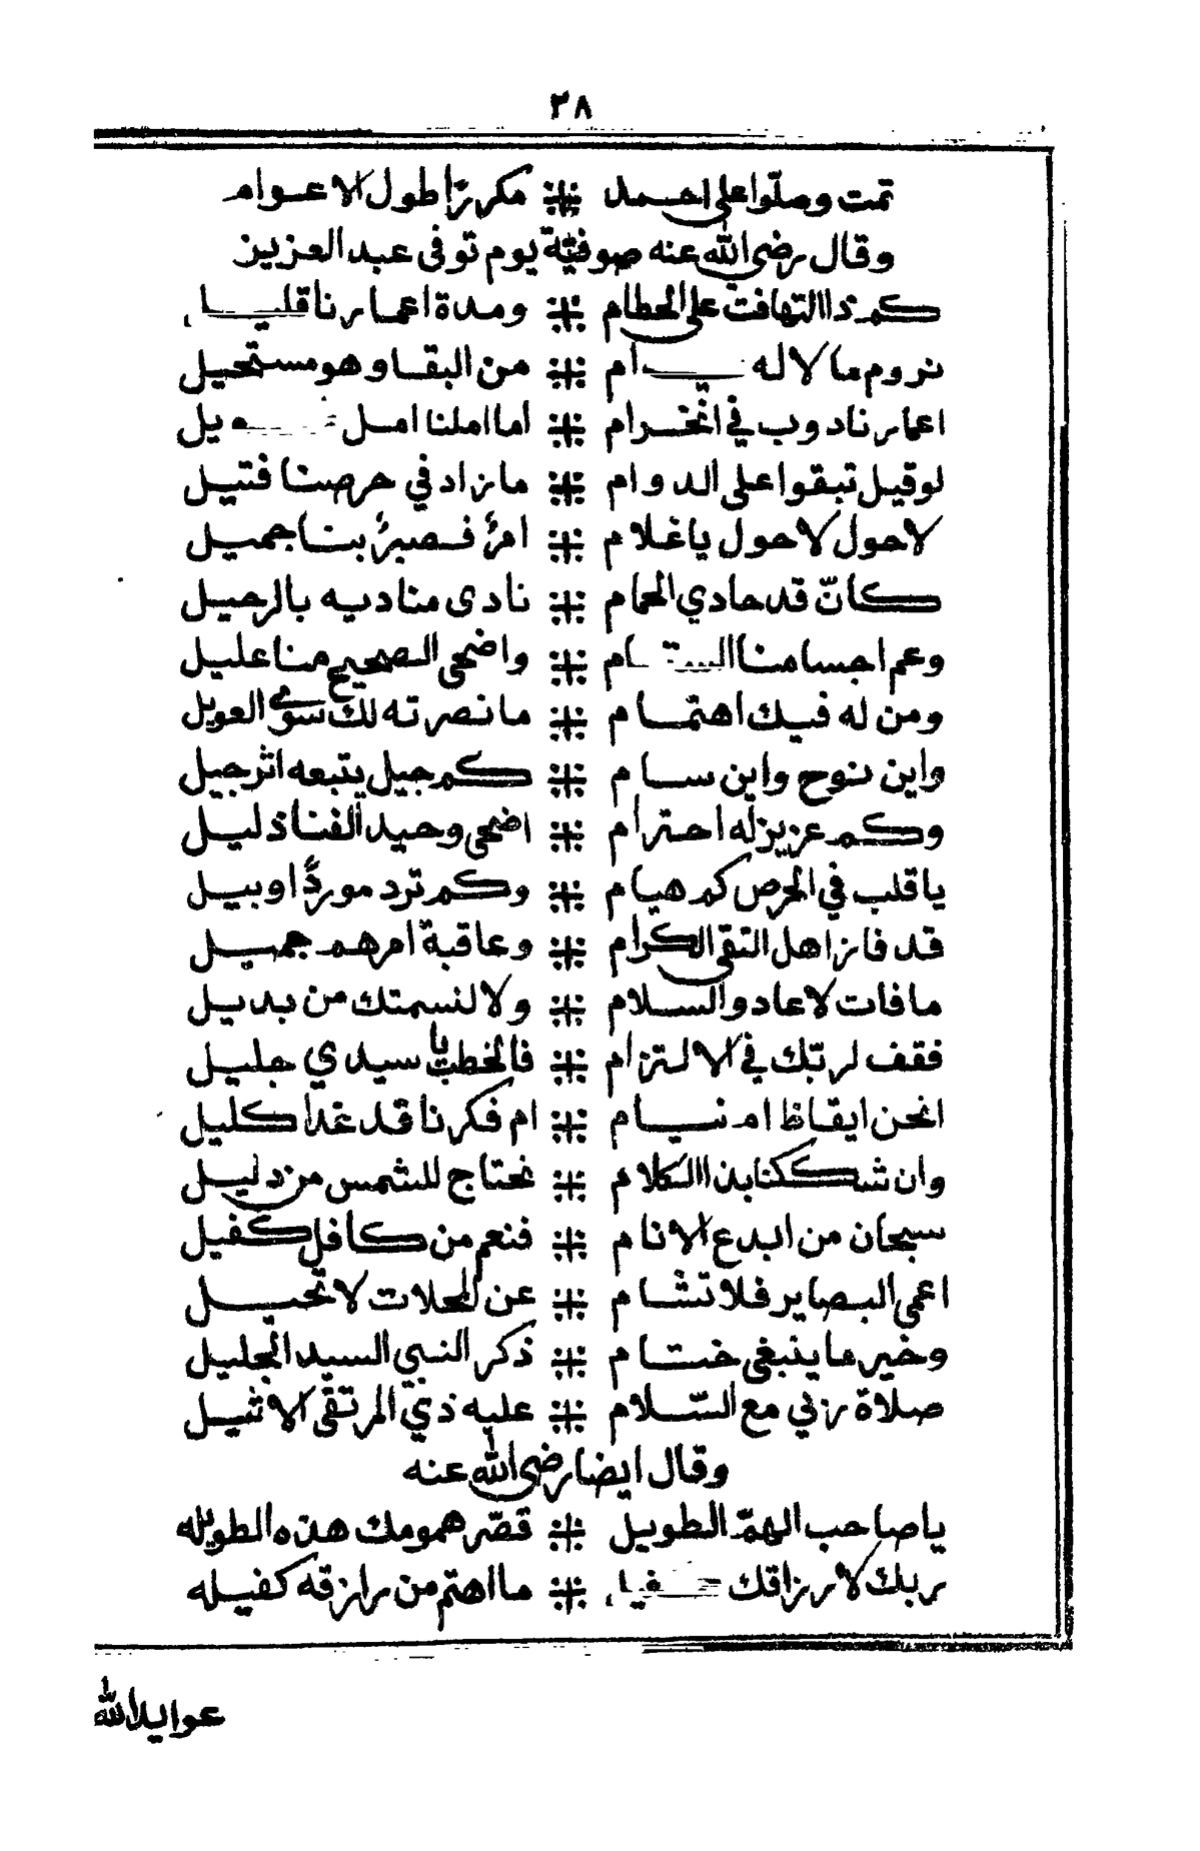 ٣٨
تمت وصلّوا على احمد ❊ مكررًا طول الاعوام
وقال رضي الله عنه صوفيّة يوم توفى عبد العزيز
كم ذا التهافت على الحطام ❊ ومدة اعمارنا قليل
نروم ما لا له دوام ❊ من البقا وهو مستحيل
اعمارنا دوب في انخرام ❊ اما املنا امل طويل
لو قيل تبقوا على الدوام ❊ ما زاد في حرصنا فتيل
لاحول لاحول يا غلام ❊ امرٌ فصبرٌ بنا جميل
كانّ قد حادي الحمام ❊ نادى مناديه بالرحيل
وعم اجسامنا السقام ❊ واضحى الصحيح منا عليل
ومن له فيك اهتمام ❊ ما نصرته لك سوى العويل
واين نوح واين سام ❊ كم جيل يتبعه اثر جيل
وكم عزيز له احترام ❊ اضحى وحيد الفنا ذليل
يا قلب في الحرص كم هيام ❊ وكم ترد موردًا وبيل
قد فاز اهل التقى الكرام ❊ وعاقبة امرهم جميل
ما فات لا عاد والسلام ❊ ولا لنسمتك من بديل
فقف لربّك في الالتزام ❊ فالخطب يا سيدي جليل
انحن ايقاظ ام نيام ❊ ام فكرنا قد غدا كليل
وان شككنا بذا الكلام ❊ نحتاج للشمس من دليل
سبحان من ابدع الانام ❊ فنعم من كافل كفيل
اعمى البصاير فلا تشام ❊ عن المحلات لا تحيل
وخير ما ينبغى ختام ❊ ذكر النبي السيد الجليل
صلاة ربي مع السّلام ❊ عليه ذي المرتقى الاثيل
وقال ايضا رضي الله عنه
يا صاحب الهمّ الطويل ❊ قصّر همومك هذه الطويله
ربك لارزاقك كفيل ❊ ما اهتم من رازقه كفيله
عوايد الله